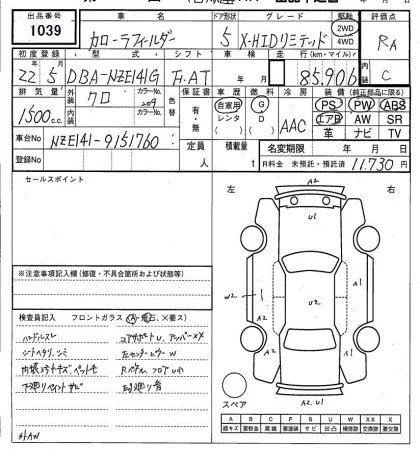 出品番号 車名 ドア形状 グレード 駆動 評価点
1039 カローラフィールダー 5 X-HIDリミテッド 2WD 4WD RA
初度登録 型式 シフト 車検 走行(km・マイル) 内装
22 5 DBA-NZE141G F・AT 年 月 85,906 C
排気量 外装 クロ カラーNo. 209 色替 保証書 車歴 燃料 冷房 装備(純正部品に限る)
1500cc 内装 カラーNo. 有・無 自家用 レンタ G D AAC PS PW ABS
エアB AW SR
革 ナビ TV
車台No NZE141-9151760 定員 人 積載量 t 名変期限 年 月
登録No R料金 未預託・預託済 11,730 円
セールスポイント 左 右
A2
U1
W2 1 U2
A2 A2 A1
A1
※注意事項記入欄(修復・不具合箇所および状態等)
検査員記入 フロントガラス (A・飛石、×要ス)
ハンドルスレ
シートヘタリ、シミ
下廻りペイントサビ
スペア A2、U1
A B C P S U W X XX X
線キズ 鈑金キズ 腐蝕 要塗装 サビ 凹凸 補修跡 交換跡 要交換